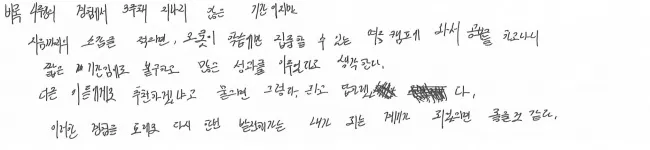 비록 4주간의 경험에서 2주째 지나지 않은 기간 이지만
지금까지의 소감을 적으면, 오롯이 학습에만 집중할 수 있는 여름 캠프에 와서 공부를 하고나니
짧은 기간임에도 불구하고 많은 성과를 이루었다고 생각한다.
다른 이들에게도 추천하겠냐고 물으면 그렇다, 라고 답하겠다.
이러한 경험을 토대로 다시 한번 발전해가는 내가 되는 계기가 되었으면 좋을것 같다.